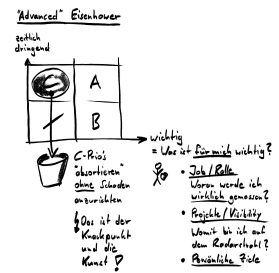 "Advanced" Eisenhower
zeitlich
dringend
C
A
B
wichtig
= Was ist für mich wichtig?
C-Prio's
"absortieren"
ohne Schaden
anzurichten
Das ist der
Knackpunkt
und die
Kunst!
• Job / Rolle
Woran werde ich
wirklich gemessen?
• Projekte / Visibility
Womit bin ich auf
dem Radarschirm?
• Persönliche Ziele